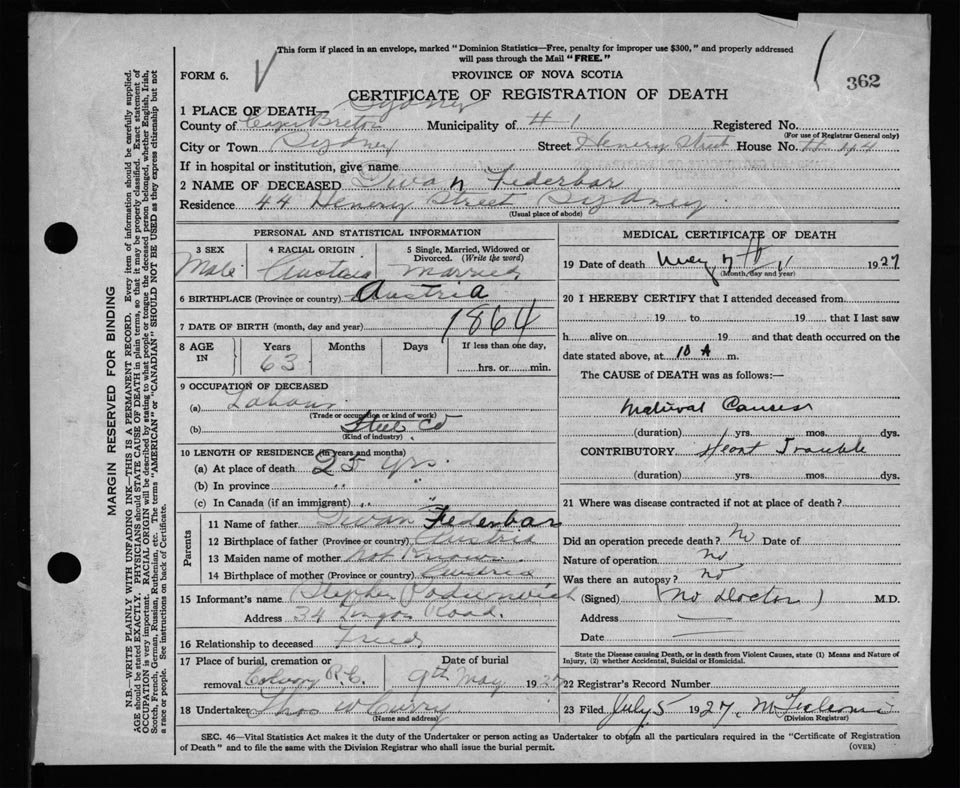 This form if placed in an envelope, marked "Dominion Statistics—Free, penalty for improper use $300," and properly addressed
will pass through the Mail "FREE."
FORM 6.
PROVINCE OF NOVA SCOTIA
362
CERTIFICATE OF REGISTRATION OF DEATH
1 PLACE OF DEATH— Sydney
County of Cape Breton Municipality of # 1 Registered No.
(For use of Registrar General only)
City or Town Sydney Street Henery Street House No. 44
If in hospital or institution, give name
2 NAME OF DECEASED Iwan Federbar
Residence 44 Henery Street Sydney
(Usual place of abode)
PERSONAL AND STATISTICAL INFORMATION
3 SEX 4 RACIAL ORIGIN 5 Single, Married, Widowed or Divorced. (Write the word)
Male Austria Married
6 BIRTHPLACE (Province or country) Austria
7 DATE OF BIRTH (month, day and year) 1864
8 AGE IN Years Months Days If less than one day,
63 hrs. or min.
9 OCCUPATION OF DECEASED
(a) Labour
(Trade or occupation or kind of work)
(b) Steel Co
(Kind of industry)
10 LENGTH OF RESIDENCE (in years and months)
(a) At place of death 25 yrs.
(b) In province " "
(c) In Canada (if an immigrant) " "
Parents
11 Name of father Iwan Federbar
12 Birthplace of father (Province or country) Austria
13 Maiden name of mother Not Known
14 Birthplace of mother (Province or country) Austria
15 Informant's name Stephen
Address 34 Lingan Road.
16 Relationship to deceased Friend
17 Place of burial, cremation or removal Calvary R.C. Date of burial 9th May 1927
18 Undertaker Thos W Curry
(Name and address)
MEDICAL CERTIFICATE OF DEATH
19 Date of death May 7th 1927
(Month, day and year)
20 I HEREBY CERTIFY that I attended deceased from
19 to 19 that I last saw
h alive on 19 and that death occurred on the
date stated above, at 10 A m.
The CAUSE of DEATH was as follows:—
Natural Causes
(duration) yrs. mos. dys.
CONTRIBUTORY Heart Trouble
(duration) yrs. mos. dys.
21 Where was disease contracted if not at place of death?
Did an operation precede death? No Date of
Nature of operation No
Was there an autopsy? No
(Signed) (No Doctor) M.D.
Address —
Date —
State the Disease causing Death, or in death from Violent Causes, state (1) Means and Nature of
Injury, (2) whether Accidental, Suicidal or Homicidal.
22 Registrar's Record Number
23 Filed July 5 1927.
(Division Registrar)
SEC. 46—Vital Statistics Act makes it the duty of the Undertaker or person acting as Undertaker to obtain all the particulars required in the "Certificate of Registration
of Death" and to file the same with the Division Registrar who shall issue the burial permit.
(OVER)
MARGIN RESERVED FOR BINDING
N.B.—WRITE PLAINLY WITH UNFADING INK—THIS IS A PERMANENT RECORD. Every item of information should be carefully supplied.
AGE should be stated EXACTLY. PHYSICIANS should STATE CAUSE OF DEATH in plain terms, so that it may be properly classified. Exact statement of
OCCUPATION is very important. RACIAL ORIGIN will be described by stating to what people or tongue the deceased person belonged, whether English, Irish,
Scotch, French, German, Russian, Ruthenian, etc. The terms "AMERICAN" or "CANADIAN" SHOULD NOT BE USED as they express citizenship but not
a race or people. See instructions on back of Certificate.